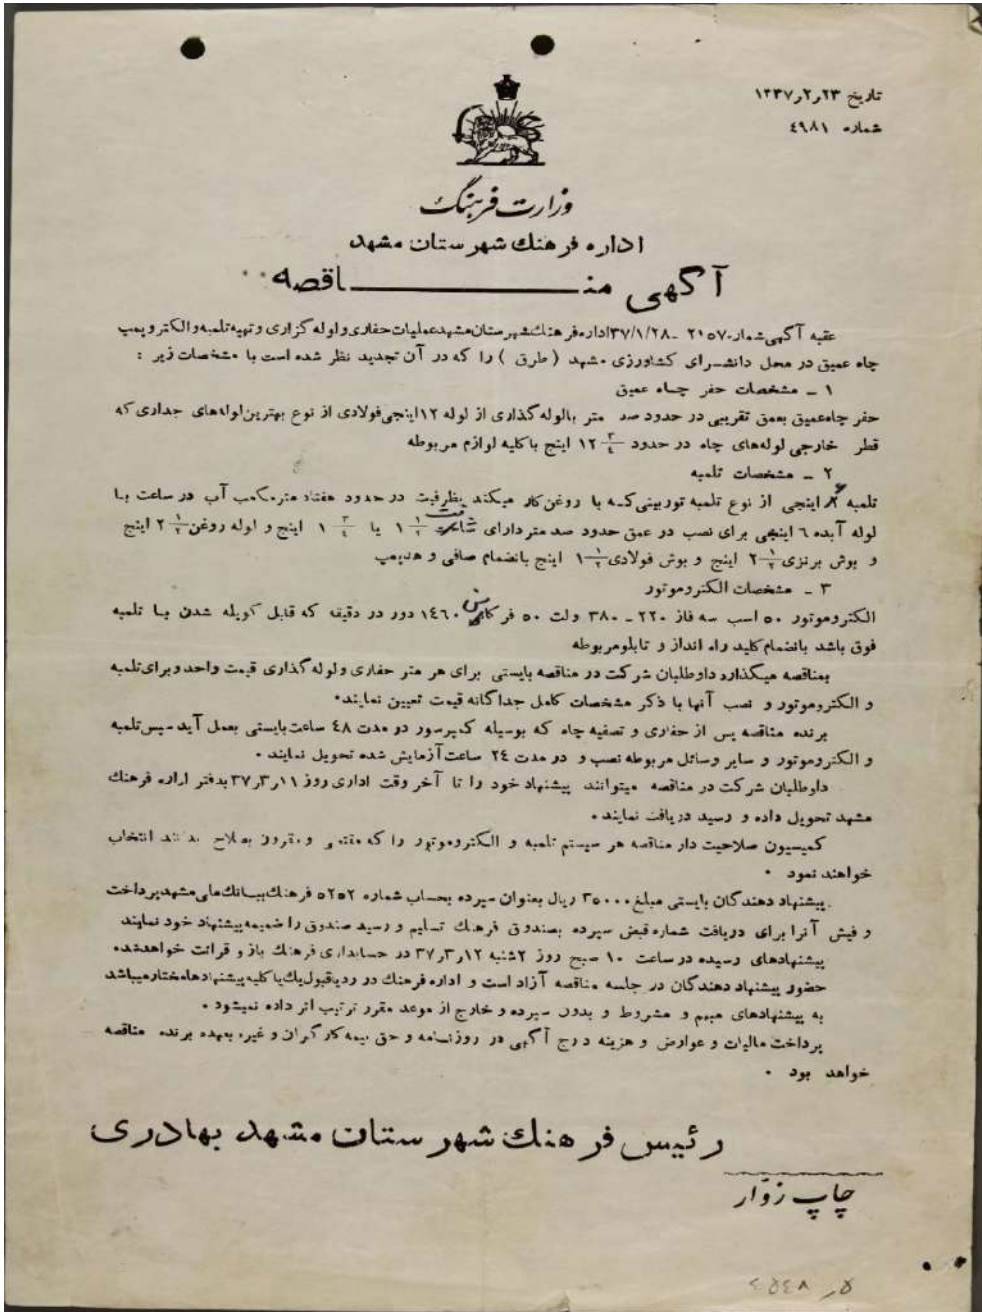 تاریخ ۲۳ر۲ر۱۳۳۷
شماره ٤۹۸۱
وزارت فرهنگ
اداره فرهنك شهرستان مشهد
آگهی مناقصه
عقبه آگهی شماره ۲۱٥۷ - ۳۷/۱/۲۸ اداره فرهنك شهرستان مشهد عملیات حفاری و لوله گزاری و تهیه تلمبه و الکتروپمپ
چاه عمیق در محل دانشسرای کشاورزی مشهد ( طرق ) را که در آن تجدید نظر شده است با مشخصات زیر :
۱ - مشخصات حفر چاه عمیق
حفر چاه عمیق بعمق تقریبی در حدود صد متر بالوله گذاری از لوله ۱۲ اینجی فولادی از نوع بهترین لوله‌های جداری که
قطر خارجی لوله‌های چاه در حدود ۱۲ ۳/٤ اینج با کلیه لوازم مربوطه
۲ - مشخصات تلمبه
تلمبه ۶ اینجی از نوع تلمبه توربینی که با روغن کار میکند بظرفیت در حدود هفتاد مترمکعب آب در ساعت با
لوله آبده ٦ اینچی برای نصب در عمق حدود صد متر دارای شافت ۱ ۱/۲ یا ۱ ۳/٤ اینج و لوله روغن ۲ ۱/۲ اینج
و بوش برنزی ۲ ۱/۲ اینج و بوش فولادی ۱ ۱/۲ اینج بانضمام صافی و هدپمپ
۳ - مشخصات الکتروموتور
الکتروموتور ٥۰ اسب سه فاز ۲۲۰ - ۳۸۰ ولت ٥۰ فرکانس ۱٤٦۰ دور در دقیقه که قابل کوپله شدن با تلمبه
فوق باشد بانضمام کلید راه انداز و تابلو مربوطه
بمناقصه میگذارد داوطلبان شرکت در مناقصه بایستی برای هر متر حفاری و لوله گذاری قیمت واحد و برای تلمبه
و الکتروموتور و نصب آنها با ذکر مشخصات کامل جداگانه قیمت تعیین نمایند.
برنده مناقصه پس از حفاری و تصفیه چاه که بوسیله کمپرسور در مدت ٤۸ ساعت بایستی بعمل آید سپس تلمبه
و الکتروموتور و سایر وسائل مربوطه نصب و در مدت ۲٤ ساعت آزمایش شده تحویل نمایند .
داوطلبان شرکت در مناقصه میتوانند پیشنهاد خود را تا آخر وقت اداری روز ۱۱ر۳ر۳۷ بدفتر اداره فرهنك
مشهد تحویل داده و رسید دریافت نمایند .
کمیسیون صلاحیت دار مناقصه هر سیستم تلمبه و الکتروموتور را که مقتضی و مقرون بصلاح بدانند انتخاب
خواهند نمود .
پیشنهاد دهندگان بایستی مبلغ ۳٥۰۰۰ ریال بعنوان سپرده بحساب شماره ٥۲٥۲ فرهنك ببانك ملی مشهد پرداخت
و فیش آنرا برای دریافت شماره قبض سپرده بصندوق فرهنك تسلیم و رسید صندوق را ضمیمه پیشنهاد خود نمایند
پیشنهادهای رسیده در ساعت ۱۰ صبح روز ۲شنبه ۱۲ر۳ر۳۷ در حسابداری فرهنك باز و قرائت خواهد شد.
حضور پیشنهاد دهندگان در جلسه مناقصه آزاد است و اداره فرهنك در رد یا قبول یك یا کلیه پیشنهادها مختار میباشد
به پیشنهادهای مبهم و مشروط و بدون سپرده و خارج از موعد مقرر ترتیب اثر داده نمیشود .
پرداخت مالیات و عوارض و هزینه درج آگهی در روزنامه و حق بیمه کارگران و غیره بعهده برنده مناقصه
خواهد بود .
رئیس فرهنك شهرستان مشهد بهادری
چاپ زوّار